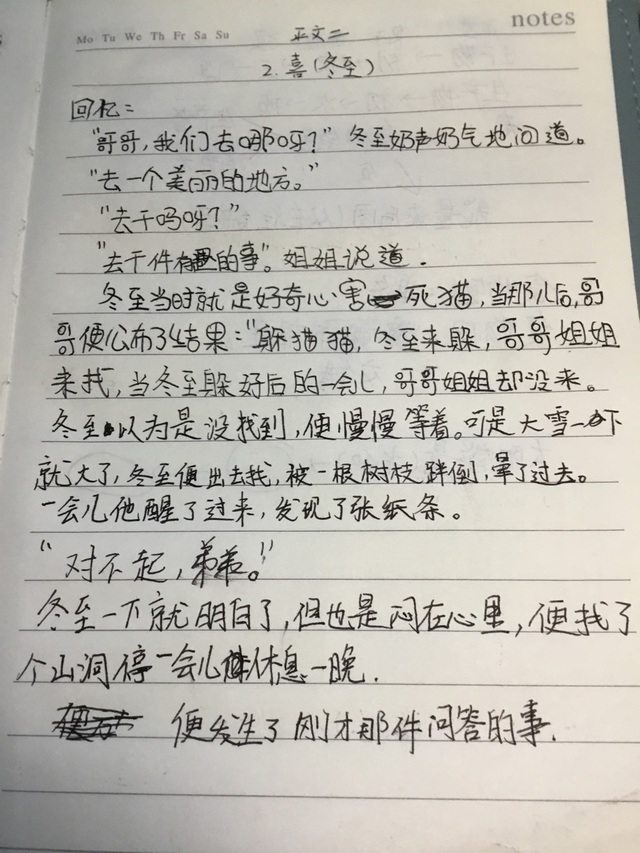 notes
Mo Tu We Th Fr Sa Su
正文二
2.喜(冬至)
回忆:
"哥哥,我们去哪呀?"冬至奶声奶气地问道。
"去一个美丽的地方。"
"去干吗呀?"
"去干件有的事"。姐姐说道.
冬至当时就是好奇心害死猫,当那儿后,哥
哥便公布了结果:"躲猫猫,冬至来躲,哥哥姐姐
来找,当冬至躲好后的一会儿,哥哥姐姐却没来。
冬至以为是没找到,便慢慢等着。可是大雪一下
就大了,冬至便出去找,被一根树枝跘倒,晕了过去。
一会儿他醒了过来,发现了张纸条。
"对不起,弟弟。"
冬至一下就明白了,但也是闷在心里,便找了
个山洞停一会儿休息一晚.
便发生了刚才那件问答的事.